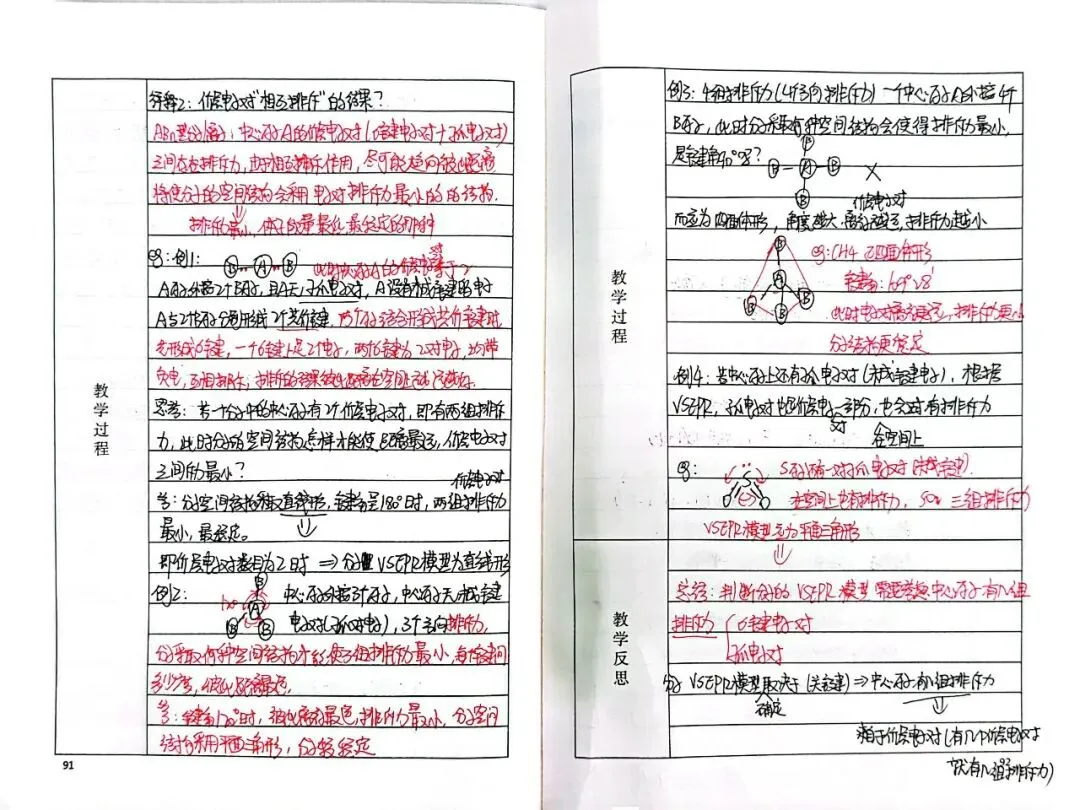 教学过程
解释2：价层电子对"相互排斥"的结果？
ABn型分子，中心原子A的价层电子对（σ键电子对+孤电子对）
之间存在排斥力，由于相互排斥作用，尽可能趋向彼此远离
将使分子的空间结构会采用电子对排斥力最小的的结构。
排斥力最小，体系能量最低，最稳定的那种
eg：例1：
B A B
此时中心原子A的价层电子对等于2
A原子外接2个B原子，且A无孤电子对，A没有未成键电子
A与2个B原子分别形成2个共价键，两个原子结合形成共价键时
先形成σ键，一个σ键上是2个电子，两个σ键为2对电子，均带
负电，互相排斥，排斥的结果彼此距离在空间上
思考：若一个分子中的中心原子有2个价层电子对，即有两组排斥
力，此时分子的空间结构怎样才能使距离最远，价层电子对
之间斥力最小？
价层电子对
答：分子空间结构采取直线形，键角是180°时，两组排斥力
最小，最稳定。
即价层电子对数目为2时 ⇒ 分子VSEPR模型为直线形
例2：
B
A
B B
中心原子外接3个原子，中心原子无未成键
电子对（孤对电子），3个方向排斥力，
分子采取何种空间结构才能使三组排斥力最小，每个键间
多少度，彼此距离最远。
答：键角120°时，彼此离得最远，排斥力最小，分子空间
结构采用平面三角形，分子较稳定
91
教学过程
例3：4组排斥力（4个方向排斥力）一个中心原子A外接4个
B原子，此时分子采取何种空间结构会使得排斥力最小，
是键角90°吗？
B
B A B ×
B
价层电子对
而应为四面体形，角度越大，离得越远，排斥力越小
B
A
B B B
eg：CH4 正四面体形
键角：109°28′
此时电子对离得更远，排斥力更小
分子结构更稳定
例4：若中心原子上还有孤电子对（未成键电子），根据
VSEPR，孤电子对也是价层电子对一部分，也会对有排斥力
在空间上
eg：
S
O O
S原子有一对孤电子对（未成键）.
在空间上也有排斥力，SO2 三组排斥力
VSEPR模型应为平面三角形
教学反思
总结：判断分子的VSEPR模型 需要考虑中心原子有几组
排斥力
σ键电子对
孤电子对
分子VSEPR模型取决于（关键）⇒ 中心原子有几组排斥力
确定
相当于价层电子对（有几个价层电子对
就有几组排斥力）